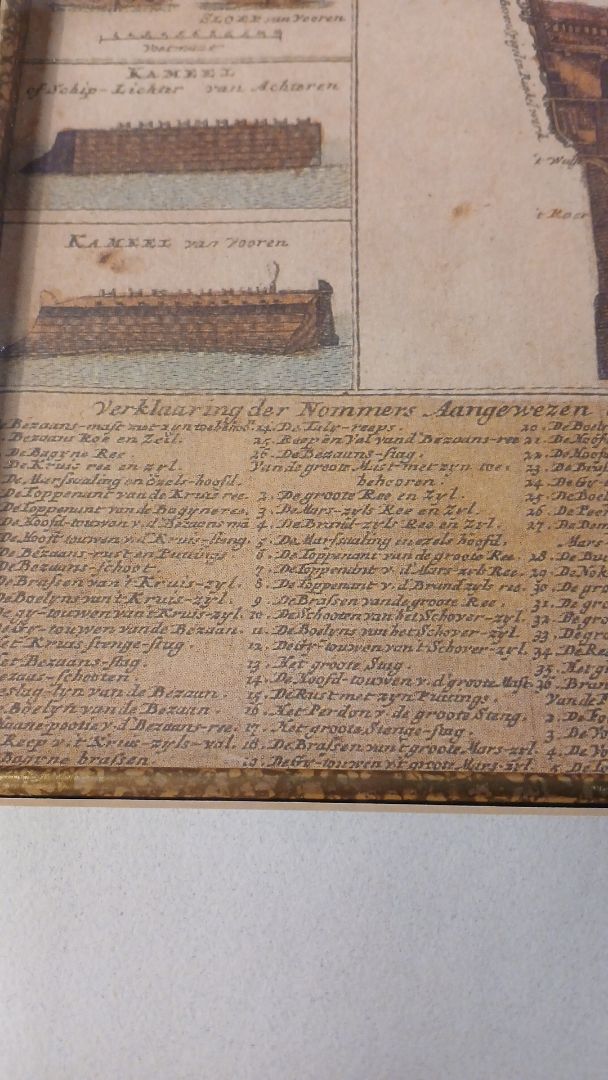 SLOEP van Vooren
Voetmaat
KAMEEL
of Schip-Lichter van Achteren
KAMEEL van Vooren
't Roer
Verklaaring der Nommers Aangewezen
Bezaans-mast met zyn
Bezaans Roe en Zeil.
De Bagyne Ree.
De Kruis ree en zyl.
De Marssaling en Ezels-hoofd.
De Toppenant van de Kruis ree.
De Toppenant van de Bagyne ree.
De Hoofd-touwen v. d' Bezaans ma
De Hooft touwen v. d. Kruis-steng.
De Bezaans-rust en Puttings
De Bezaans-schoot.
De Brassen van't Kruis-zyl.
De Boelyns van't Kruis-zyl.
De gy-touwen van't Kruis-zyl.
De Gy-touwen van de Bezaan.
et Kruis stenge-stag.
et Bezaans-stag.
ezaans-schooten.
eslag-lyn van de Bezaan.
Boelyn van de Bezaan.
v. d' Bezaans-ree.
Reep v. 't Kruis-zyls-val.
Bagyne brassen.
24. De Taly-reeps.
25. Reep en Val van d' Bezaans-ree
26. De Bezaans-stag.
Van de groote Mast met zyn toe-
behooren.
2. De groote Ree en Zyl.
3. De Mars-zyls Ree en Zyl.
4. De Bramd-zyls Ree en Zyl.
5. De Marssaling en ezels hoofd.
6. De Toppenant van de groote Ree.
7. De Toppenant v. d. Mars-zyl Ree.
8. De Toppenant v. d. Bramd zyls ree.
9. De Brassen van de groote Ree.
10. De Schooten van het Schover-zyl.
11. De Boelyns van het Schover-zyl.
12. De Gy-touwen van het Schover-zyl.
13. Het groote Stag.
14. De Hoofd-touwen v. d' groote Mast.
15. De Rust met zyn Puttings.
16. Het Perdon v. de groote Steng.
17. Het groote Stenge-stag.
18. De Brassen van't groote Mars-zyl.
19. De Gy-touwen v. 't groote Mars-zyl.
20. De Boely
21. De Hoofd
22. De Hoofd
23. De
24. De Gy-t
25. De Boel
26. De
27. De
Mars-
28. De
29. De Nok
30. De gro
31. De gro
32. De gro
33. De gro
34. De Ree
35. Het g
36. Bram
Van de F
2. De
3. De Vo
4. De Vo
5. De